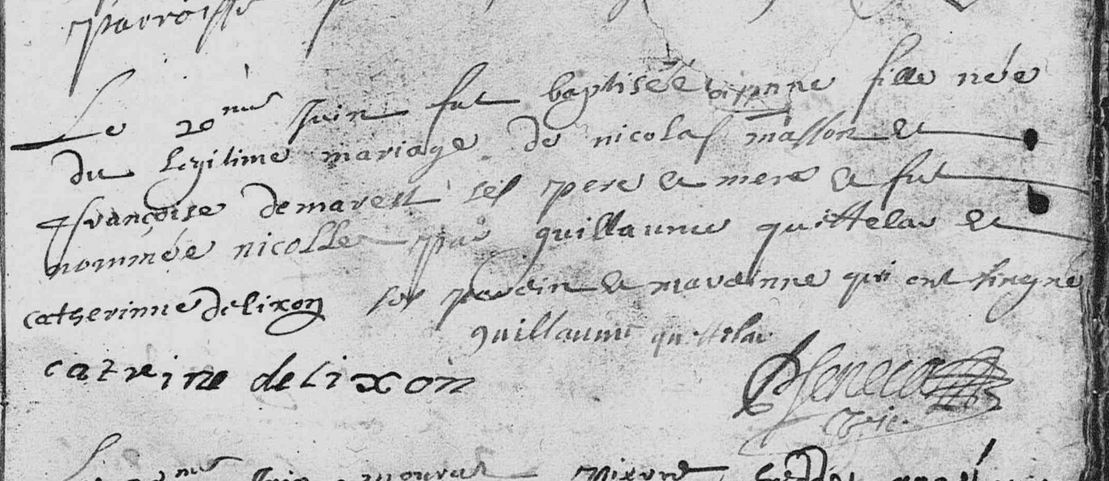 parroisse
Le 20me Juin fut baptisée fille née
du legitime mariage de nicolas masson et
françoise demarest ses pere et mere et fut
nommée nicolle par guillaume quittelar et
catherinne delixon ses parain et marainne qui ont singné
guillaume quittelar
catreine delixon
Seneca
Vic.
me Juin mourut pierre